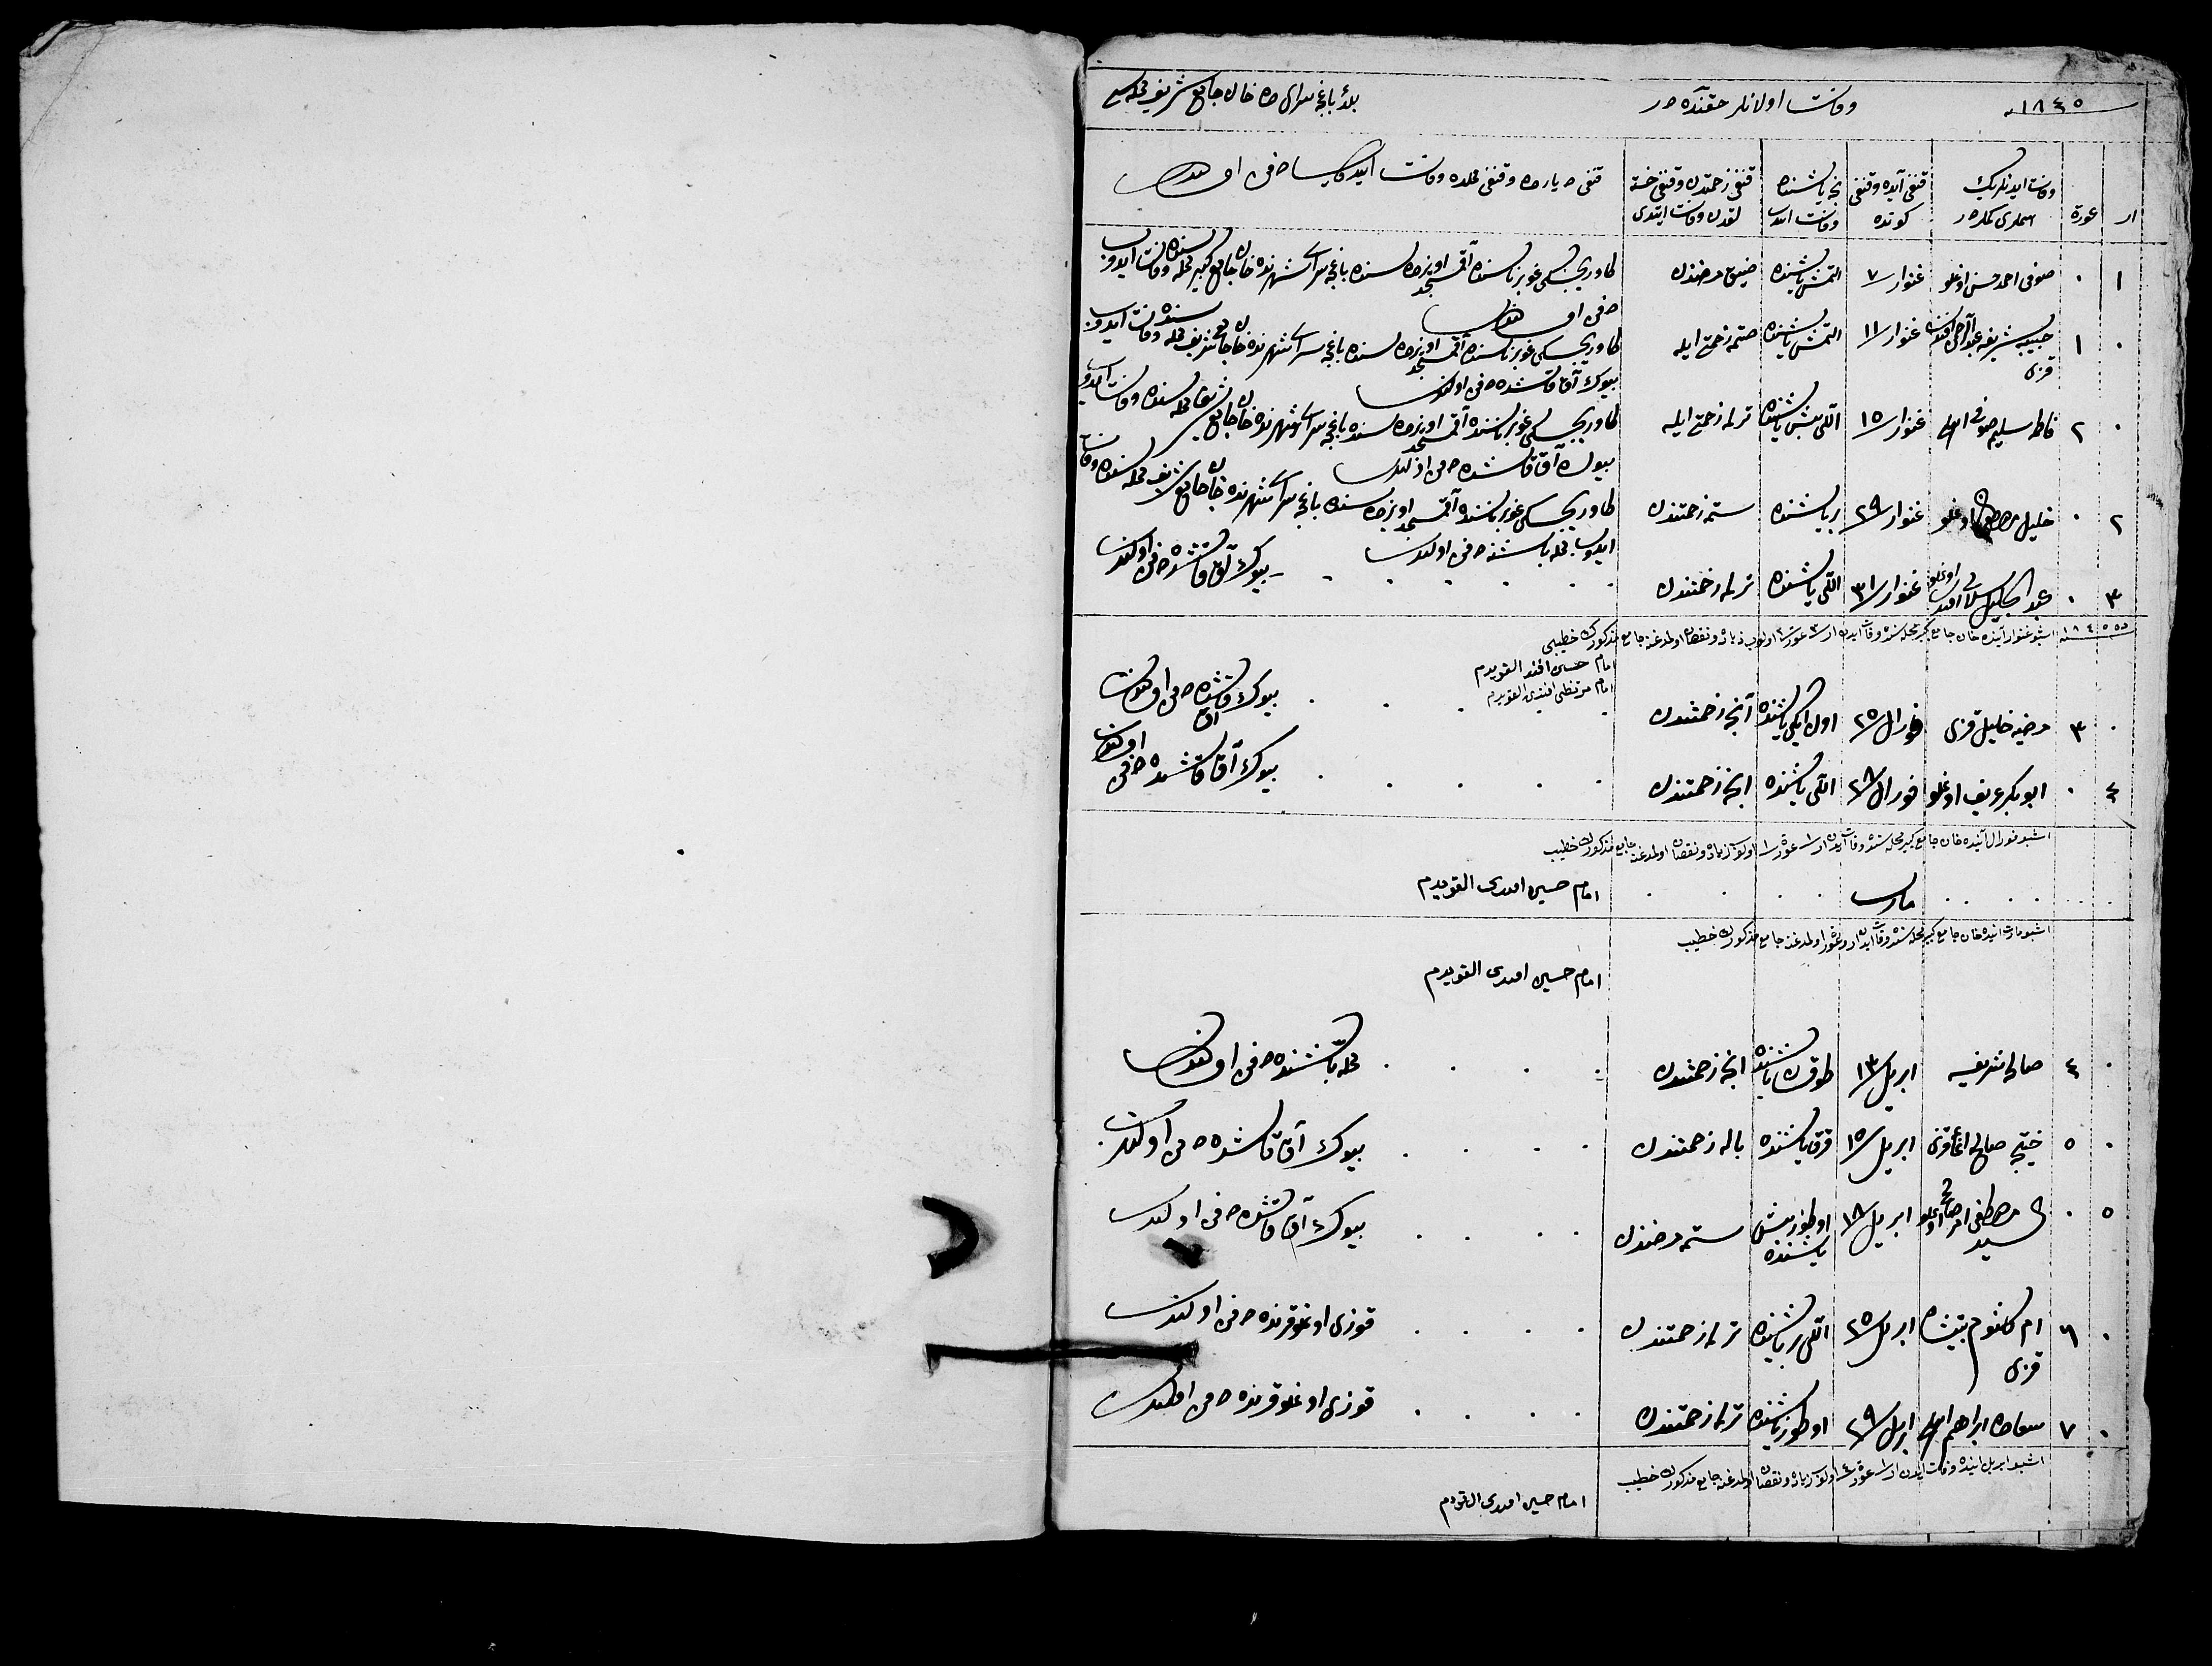 سنه ١٨٤٥ وفات اولانلر حقنده در بلدۀ باغچه سرای ده خان جامع شریف محله سی
ار عورة وفات ایدنلریڭ اسملری کملر در قنغی آیده وقنغی کونده نچه یاشنده وفات ایدب قنغی زحمتدن وقنغی خسته لقدن وفات ایتدی قنغی دیارده وقنغی محلده وفات ایدب قایسا دفن اولندی
١ ٠ صوفی احمد حسن اوغلو غنوار ٧ التمش یاشنده ضیق مرضندن طاوریچسکی غوبرناسنده آقمسجد اویزده سنده باغچه سرای شهرنده خان جامع کبیر محله سنده وفات ایدوب
دفن اولندی
٠ ١ حبیبه شریفه قزی غنوار ١١ التمش یاشنده صتمه زحمتی ایله طاوریچسکی غوبرناسنده آقمسجد اویزده سنده باغچه سرای شهرنده خان جامع شریف محله سنده وفات ایدوب
بیوك آقاقاشده دفن اولندی
٠ ٢ فاطمه سلیم صوفی غنوار ١٥ اللی بش یاشنده ترلمه زحمتی ایله طاوریچسکی غوبرناسنده آقمسجد اویزده سنده باغچه سرای شهرنده خان جامع شریف محله سنده وفات ایدوب
بیوك آقاقاشده دفن اولندی
٢ ٠ خلیل اوغلو غنوار ٢٩ بر یاشنده ستمه زحمتندن طاوریچسکی غوبرناسنده آقمسجد اویزده سنده باغچه سرای شهرنده خان جامع شریف محله سنده وفات
ایدوب محله باشنده دفن اولندی
٣ ٠ عبد الجلیل اوغلو غنوار ٣١ اللی یاشنده ترلمه زحمتندن بیوك آقاقاشده دفن اولندی
اشبو غنوار آینده خان جامع کبیر محله سنده وفات ایدن ار ٣ عورة ٢ اولوب زیاده ونقصان اولمدغنه جامع مذکورڭ خطیبی
امام حسین افندی القویدم
امام مرتضی افندی القویدم
٠ ٣ مرضیه خلیل قزی فورال ٢٥ اون ایکی یاشنده آنجه زحمتندن بیوك آقاقاشده دفن اولندی
٤ ٠ ابو بکر عریف اوغلو فورال ٢٨ اللی یاشنده انجه زحمتندن بیوك آقاقاشده دفن اولندی
اشبو فورال آینده خان جامع کبیر محله سنده وفات ایدن ار ١ عورة ١ اولوب زیاده ونقصان اولمدغنه جامع مذکورڭ خطیب
امام حسین افندی القویدم
مارت
اشبو مارت آینده خان جامع کبیر محله سنده وفات ایدن ار وعورة اولمدغنه جامع مذکورڭ خطیب
امام حسین افندی القویدم
٠ ٤ صالحه شریفه ابریل ١٣ طوقسان یاشنده انجه زحمتندن محله باشنده دفن اولندی
٠ ٥ خدیجه صالح اغا قزی ابریل ١٥ قرق یاشنده باله زحمتندن بیوك آقاقاشده دفن اولندی
٥ ٠ السید مصطفی اوغلو ابریل ١٨ اوطوز بش یاشنده ستمه مرضندن بیوك آقاقاشده دفن اولندی
٠ ٦ ام کلثوم قزی ابریل ٢٥ اللی بر یاشنده ترلمه زحمتندن قوزی اوغلو قرنده دفن اولندی
٠ ٧ سعاده ابراهیم ابریل ٢٩ اوطوز یاشنده ترلمه زحمتندن قوزی اوغلو قرنده دفن اولندی
اشبو ابریل آینده وفات ایدن ار ١ عورة ٤ اولوب زیاده ونقصان اولمدغنه جامع مذکورڭ خطیب
امام حسین افندی القویدم